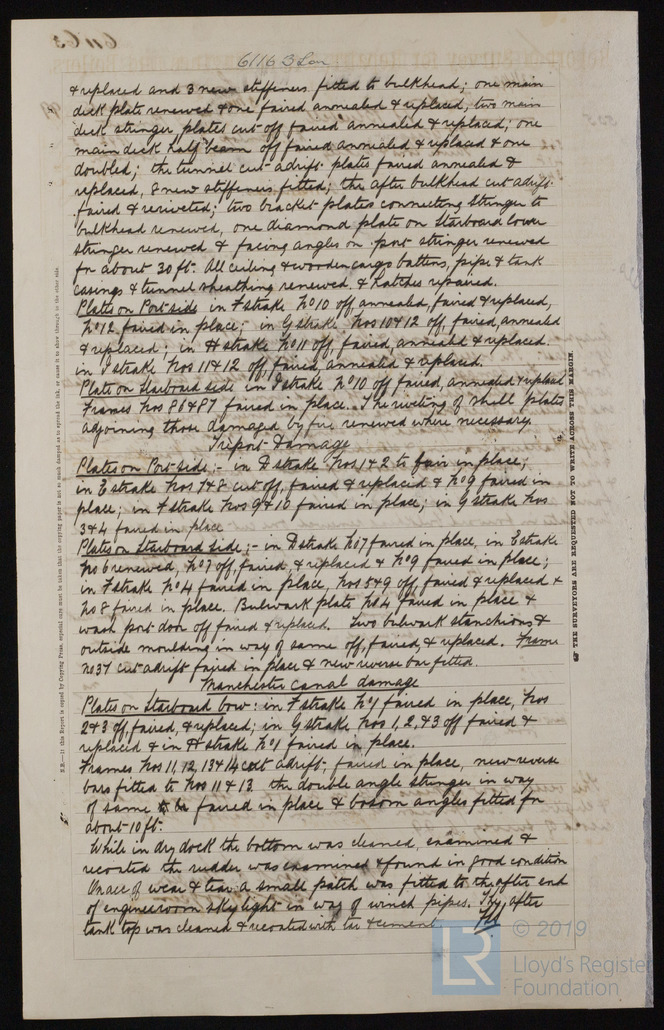 61163 Lon
& replaced and 3 new stiffeners fitted to bulkhead; one main
deck plate renewed & one faired annealed & replaced, two main
deck stringer plates cut off faired annealed & replaced; one
main deck half beam off faired annealed & replaced & one
doubled; the tunnel cut adrift plates faired annealed &
replaced, 8 new stiffeners fitted; the after bulkhead cut adrift
faired & reriveted; two bracket plates connecting stringer to
bulkhead renewed, one diamond plate on Starboard lower
stringer renewed & facing angles on port stringer renewed
for about 30 ft. All ceiling & wooden cargo battens, pipe & tank
casings & tunnel sheathing renewed & hatches repaired.
Plates on Port side in F strake No 10 off, annealed, faired & replaced,
No 12 faired in place; in G strake Nos 10 & 12 off, faired, annealed
& replaced; in H strake No 11 off, faired, annealed & replaced.
in J strake Nos 11 & 12 off, faired, annealed & replaced.
Plate on Starboard side in J strake No 10 off faired, annealed & replaced
Frames Nos 86 & 87 faired in place. The riveting of shell plates
adjoining those damaged by fire renewed where necessary
Treport Damage
Plates on Port side;- in D strake Nos 1 & 2 to fair in place;
in E strake Nos 7 & 8 cut off, faired & replaced & No 9 faired in
place; in F strake Nos 9 & 10 faired in place; in G strake Nos
3 & 4 faired in place
Plates on Starboard Side;- in D strake No 7 faired in place, in E strake
No 6 renewed, No 7 off, faired, & replaced & No 9 faired in place;
in F strake No 4 faired in place, Nos 5 & 9 off, faired & replaced &
No 8 faired in place. Bulwark plate No 4 faired in place &
wash port door off faired & replaced. Two bulwark stanchions &
outside moulding in way of same off, faired, & replaced. Frame
No 37 cut adrift faired in place & new reverse bar fitted.
Manchester Canal damage
Plates on Starboard bow: in F strake No 1 faired in place, Nos
2 & 3 off, faired, & replaced; in G strake Nos 1, 2, & 3 off faired &
replaced & in H strake No 1 faired in place.
Frames Nos 11, 12, 13 & 14 cut adrift, faired in place, new reverse
bars fitted to Nos 11 & 13 the double angle stringer in way
of same faired in place & bosom angles fitted for
about 10 ft.
While in dry dock the bottom was cleaned, examined &
recoated the rudder was examined & found in good condition
On acc of wear & tear a small patch was fitted to the after end
of engineroom skylight in way of winch pipes. The after
tank top was cleaned & recoated with tar & cement
N.B.—If this Report is copied by Copying Press, especial care must be taken that the copying paper is not so much damped as to spread the ink, or cause it to show through to the other side.
THE SURVEYORS ARE REQUESTED NOT TO WRITE ACROSS THIS MARGIN.
LR © 2019
Lloyd's Register
Foundation